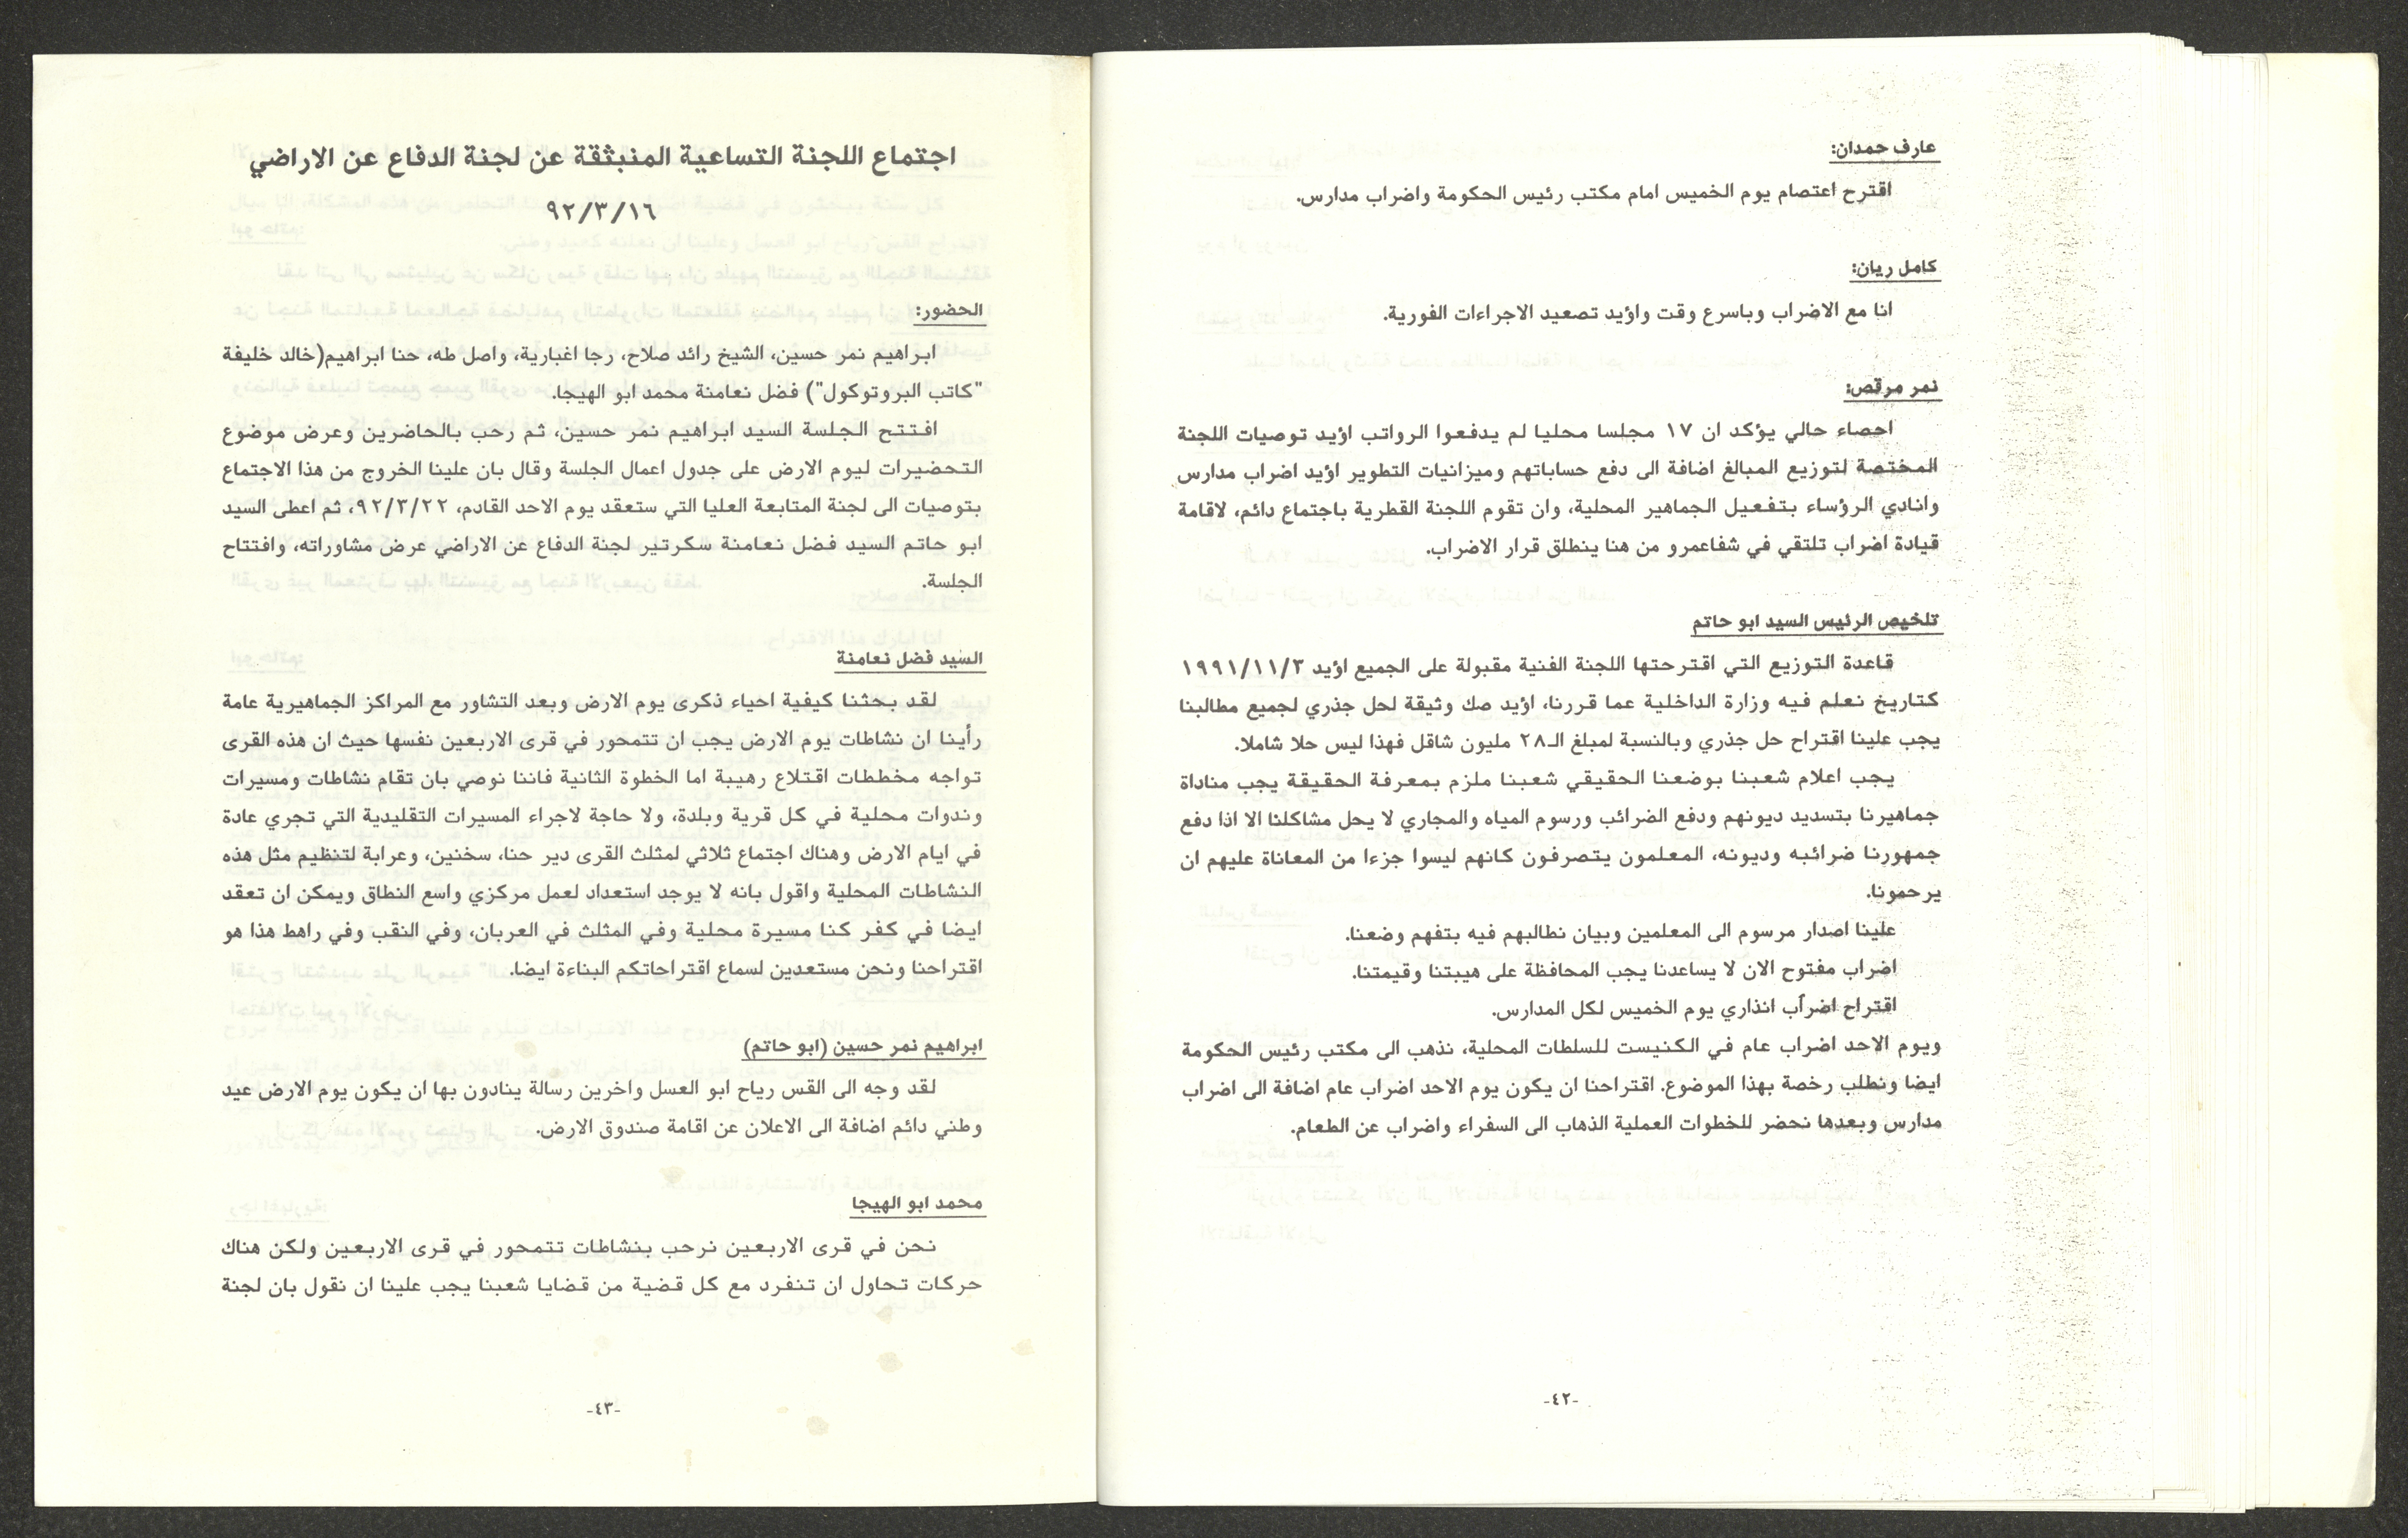 عارف حمدان:
اقترح اعتصام يوم الخميس امام مكتب رئيس الحكومة واضراب مدارس.
كامل ريان:
انا مع الاضراب وباسرع وقت واؤيد تصعيد الاجراءات الفورية.
نمر مرقص:
احصاء حالي يؤكد ان ١٧ مجلسا محليا لم يدفعوا الرواتب اؤيد توصيات اللجنة
المختصة لتوزيع المبالغ اضافة الى دفع حساباتهم وميزانيات التطوير اؤيد اضراب مدارس
وانادي الرؤساء بتفعيل الجماهير المحلية، وان تقوم اللجنة القطرية باجتماع دائم، لاقامة
قيادة اضراب تلتقي في شفاعمرو من هنا ينطلق قرار الاضراب.
تلخيص الرئيس السيد ابو حاتم
قاعدة التوزيع التي اقترحتها اللجنة الفنية مقبولة على الجميع اؤيد ١٩٩١/١١/٣
كتاريخ نعلم فيه وزارة الداخلية عما قررنا، اؤيد صك وثيقة لحل جذري لجميع مطالبنا
يجب علينا اقتراح حل جذري وبالنسبة لمبلغ الـ٢٨ مليون شاقل فهذا ليس حلا شاملا.
يجب اعلام شعبنا بوضعنا الحقيقي شعبنا ملزم بمعرفة الحقيقة يجب مناداة
جماهيرنا بتسديد ديونهم ودفع الضرائب ورسوم المياه والمجاري لا يحل مشاكلنا الا اذا دفع
جمهورنا ضرائبه وديونه، المعلمون يتصرفون كانهم ليسوا جزءا من المعاناة عليهم ان
يرحمونا.
علينا اصدار مرسوم الى المعلمين وبيان نطالبهم فيه بتفهم وضعنا.
اضراب مفتوح الان لا يساعدنا يجب المحافظة على هيبتنا وقيمتنا.
اقتراح اضراب انذاري يوم الخميس لكل المدارس.
ويوم الاحد اضراب عام في الكنيست للسلطات المحلية، نذهب الى مكتب رئيس الحكومة
ايضا ونطلب رخصة بهذا الموضوع. اقتراحنا ان يكون يوم الاحد اضراب عام اضافة الى اضراب
مدارس وبعدها نحضر للخطوات العملية الذهاب الى السفراء واضراب عن الطعام.
-٤٢-
اجتماع اللجنة التساعية المنبثقة عن لجنة الدفاع عن الاراضي
٩٢/٣/١٦
الحضور:
ابراهيم نمر حسين، الشيخ رائد صلاح، رجا اغبارية، واصل طه، حنا ابراهيم(خالد خليفة
"كاتب البروتوكول") فضل نعامنة محمد ابو الهيجا.
افتتح الجلسة السيد ابراهيم نمر حسين، ثم رحب بالحاضرين وعرض موضوع
التحضيرات ليوم الارض على جدول اعمال الجلسة وقال بان علينا الخروج من هذا الاجتماع
بتوصيات الى لجنة المتابعة العليا التي ستعقد يوم الاحد القادم، ٩٢/٣/٢٢، ثم اعطى السيد
ابو حاتم السيد فضل نعامنة سكرتير لجنة الدفاع عن الاراضي عرض مشاوراته، وافتتاح
الجلسة.
السيد فضل نعامنة
لقد بحثنا كيفية احياء ذكرى يوم الارض وبعد التشاور مع المراكز الجماهيرية عامة
رأينا ان نشاطات يوم الارض يجب ان تتمحور في قرى الاربعين نفسها حيث ان هذه القرى
تواجه مخططات اقتلاع رهيبة اما الخطوة الثانية فاننا نوصي بان تقام نشاطات ومسيرات
وندوات محلية في كل قرية وبلدة، ولا حاجة لاجراء المسيرات التقليدية التي تجري عادة
في ايام الارض وهناك اجتماع ثلاثي لمثلث القرى دير حنا، سخنين، وعرابة لتنظيم مثل هذه
النشاطات المحلية واقول بانه لا يوجد استعداد لعمل مركزي واسع النطاق ويمكن ان تعقد
ايضا في كفر كنا مسيرة محلية وفي المثلث في العربان، وفي النقب وفي راهط هذا هو
اقتراحنا ونحن مستعدين لسماع اقتراحاتكم البناءة ايضا.
ابراهيم نمر حسين (ابو حاتم)
لقد وجه الى القس رياح ابو العسل واخرين رسالة ينادون بها ان يكون يوم الارض عيد
وطني دائم اضافة الى الاعلان عن اقامة صندوق الارض.
محمد ابو الهيجا
نحن في قرى الاربعين نرحب بنشاطات تتمحور في قرى الاربعين ولكن هناك
حركات تحاول ان تنفرد مع كل قضية من قضايا شعبنا يجب علينا ان نقول بان لجنة
-٤٣-